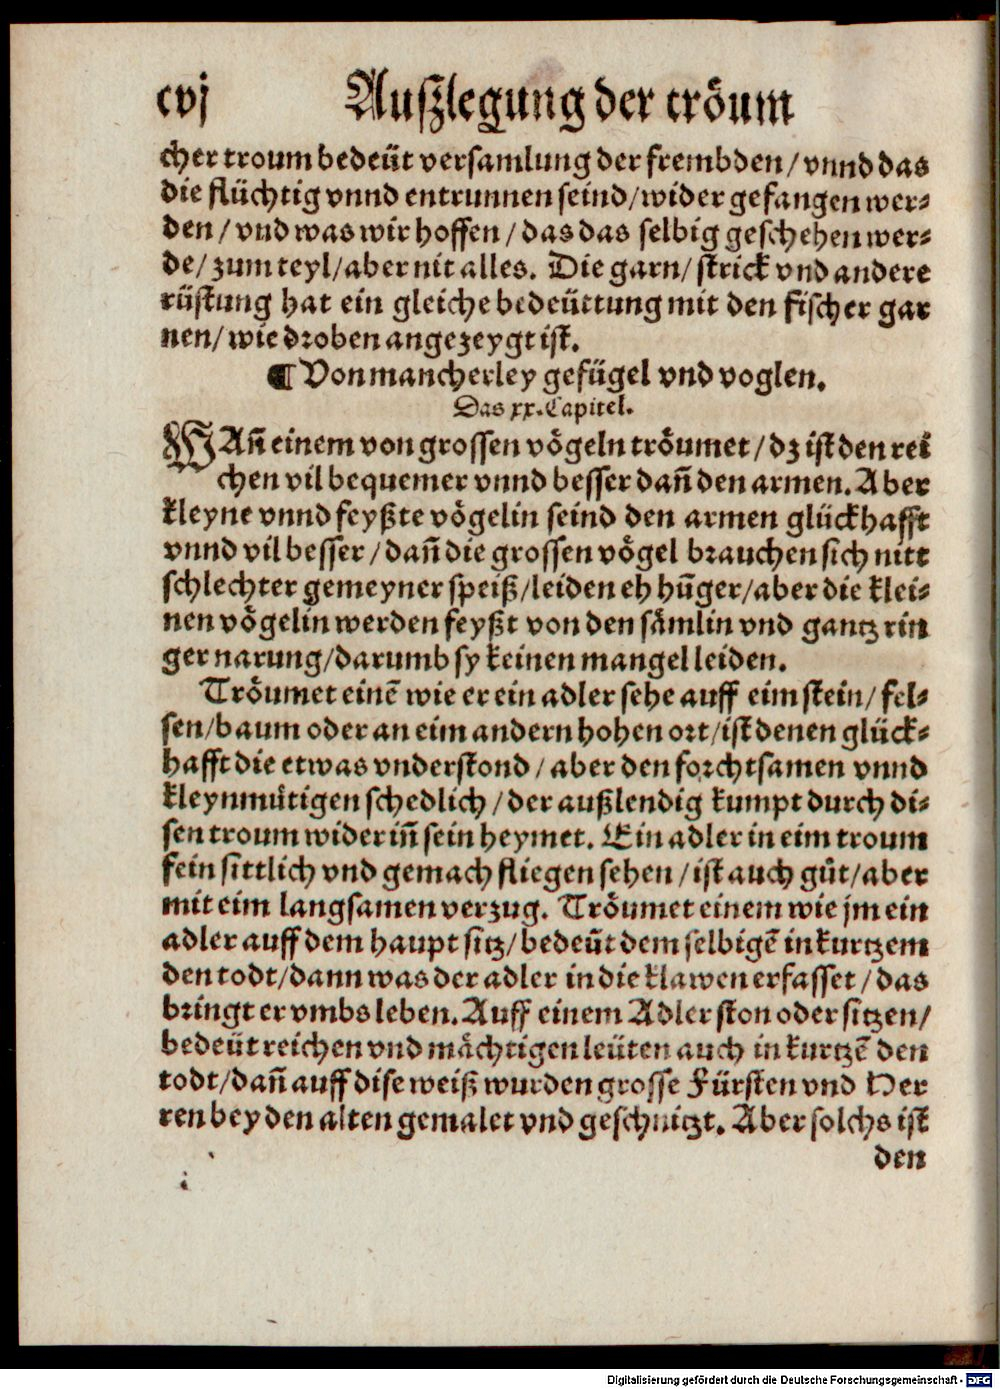 cvj Auszlegung der tröum
cher troum bedeüt versamlung der frembden / vnnd das
die flüchtig vnnd entrunnen seind / wider gefangen wer⸗
den / vnd was wir hoffen / das das selbig geschehen wer⸗
de / zum teyl / aber nit alles. Die garn / strick vnd andere
rüstung hat ein gleiche bedeüttung mit den fischer gar
nen / wie droben angezeygt ist.
¶ Von mancherley gefügel vnd voglen.
Das xx. Capitel.
WAñ einem von grossen vögeln tröumet / dz ist den rei
chen vil bequemer vnnd besser dañ den armen. Aber
kleyne vnnd feyßte vögelin seind den armen glückhafft
vnnd vil besser / dañ die grossen vögel brauchen sich nitt
schlechter gemeyner speiß / leiden eh hūger / aber die klei⸗
nen vögelin werden feyßt von den sämlin vnd gantz rin
ger narung / darumb sy keinen mangel leiden.
Tröumet einē wie er ein adler sehe auff eim stein / fel⸗
sen / baum oder an eim andern hohen ort / ist denen glück⸗
hafft die etwas vnderstond / aber den forchtsamen vnnd
kleynmütigen schedlich / der außlendig kumpt durch di⸗
sen troum wider iñ sein heymet. Ein adler in eim troum
fein sittlich vnd gemach fliegen sehen / ist auch gůt / aber
mit eim langsamen verzug. Tröumet einem wie jm ein
adler auff dem haupt sitz / bedeüt dem selbigē in kurtzem
den todt / dann was der adler in die klawen erfasset / das
bringt er vmbs leben. Auff einem Adler ston oder sitzen /
bedeüt reichen vnd mächtigen leüten auch in kurtzē den
todt / dañ auff dise weiß wurden grosse Fürsten vnd Her
ren bey den alten gemalet vnd geschnitzt. Aber solchs ist
den
Digitalisierung gefördert durch die Deutsche Forschungsgemeinschaft - DFG